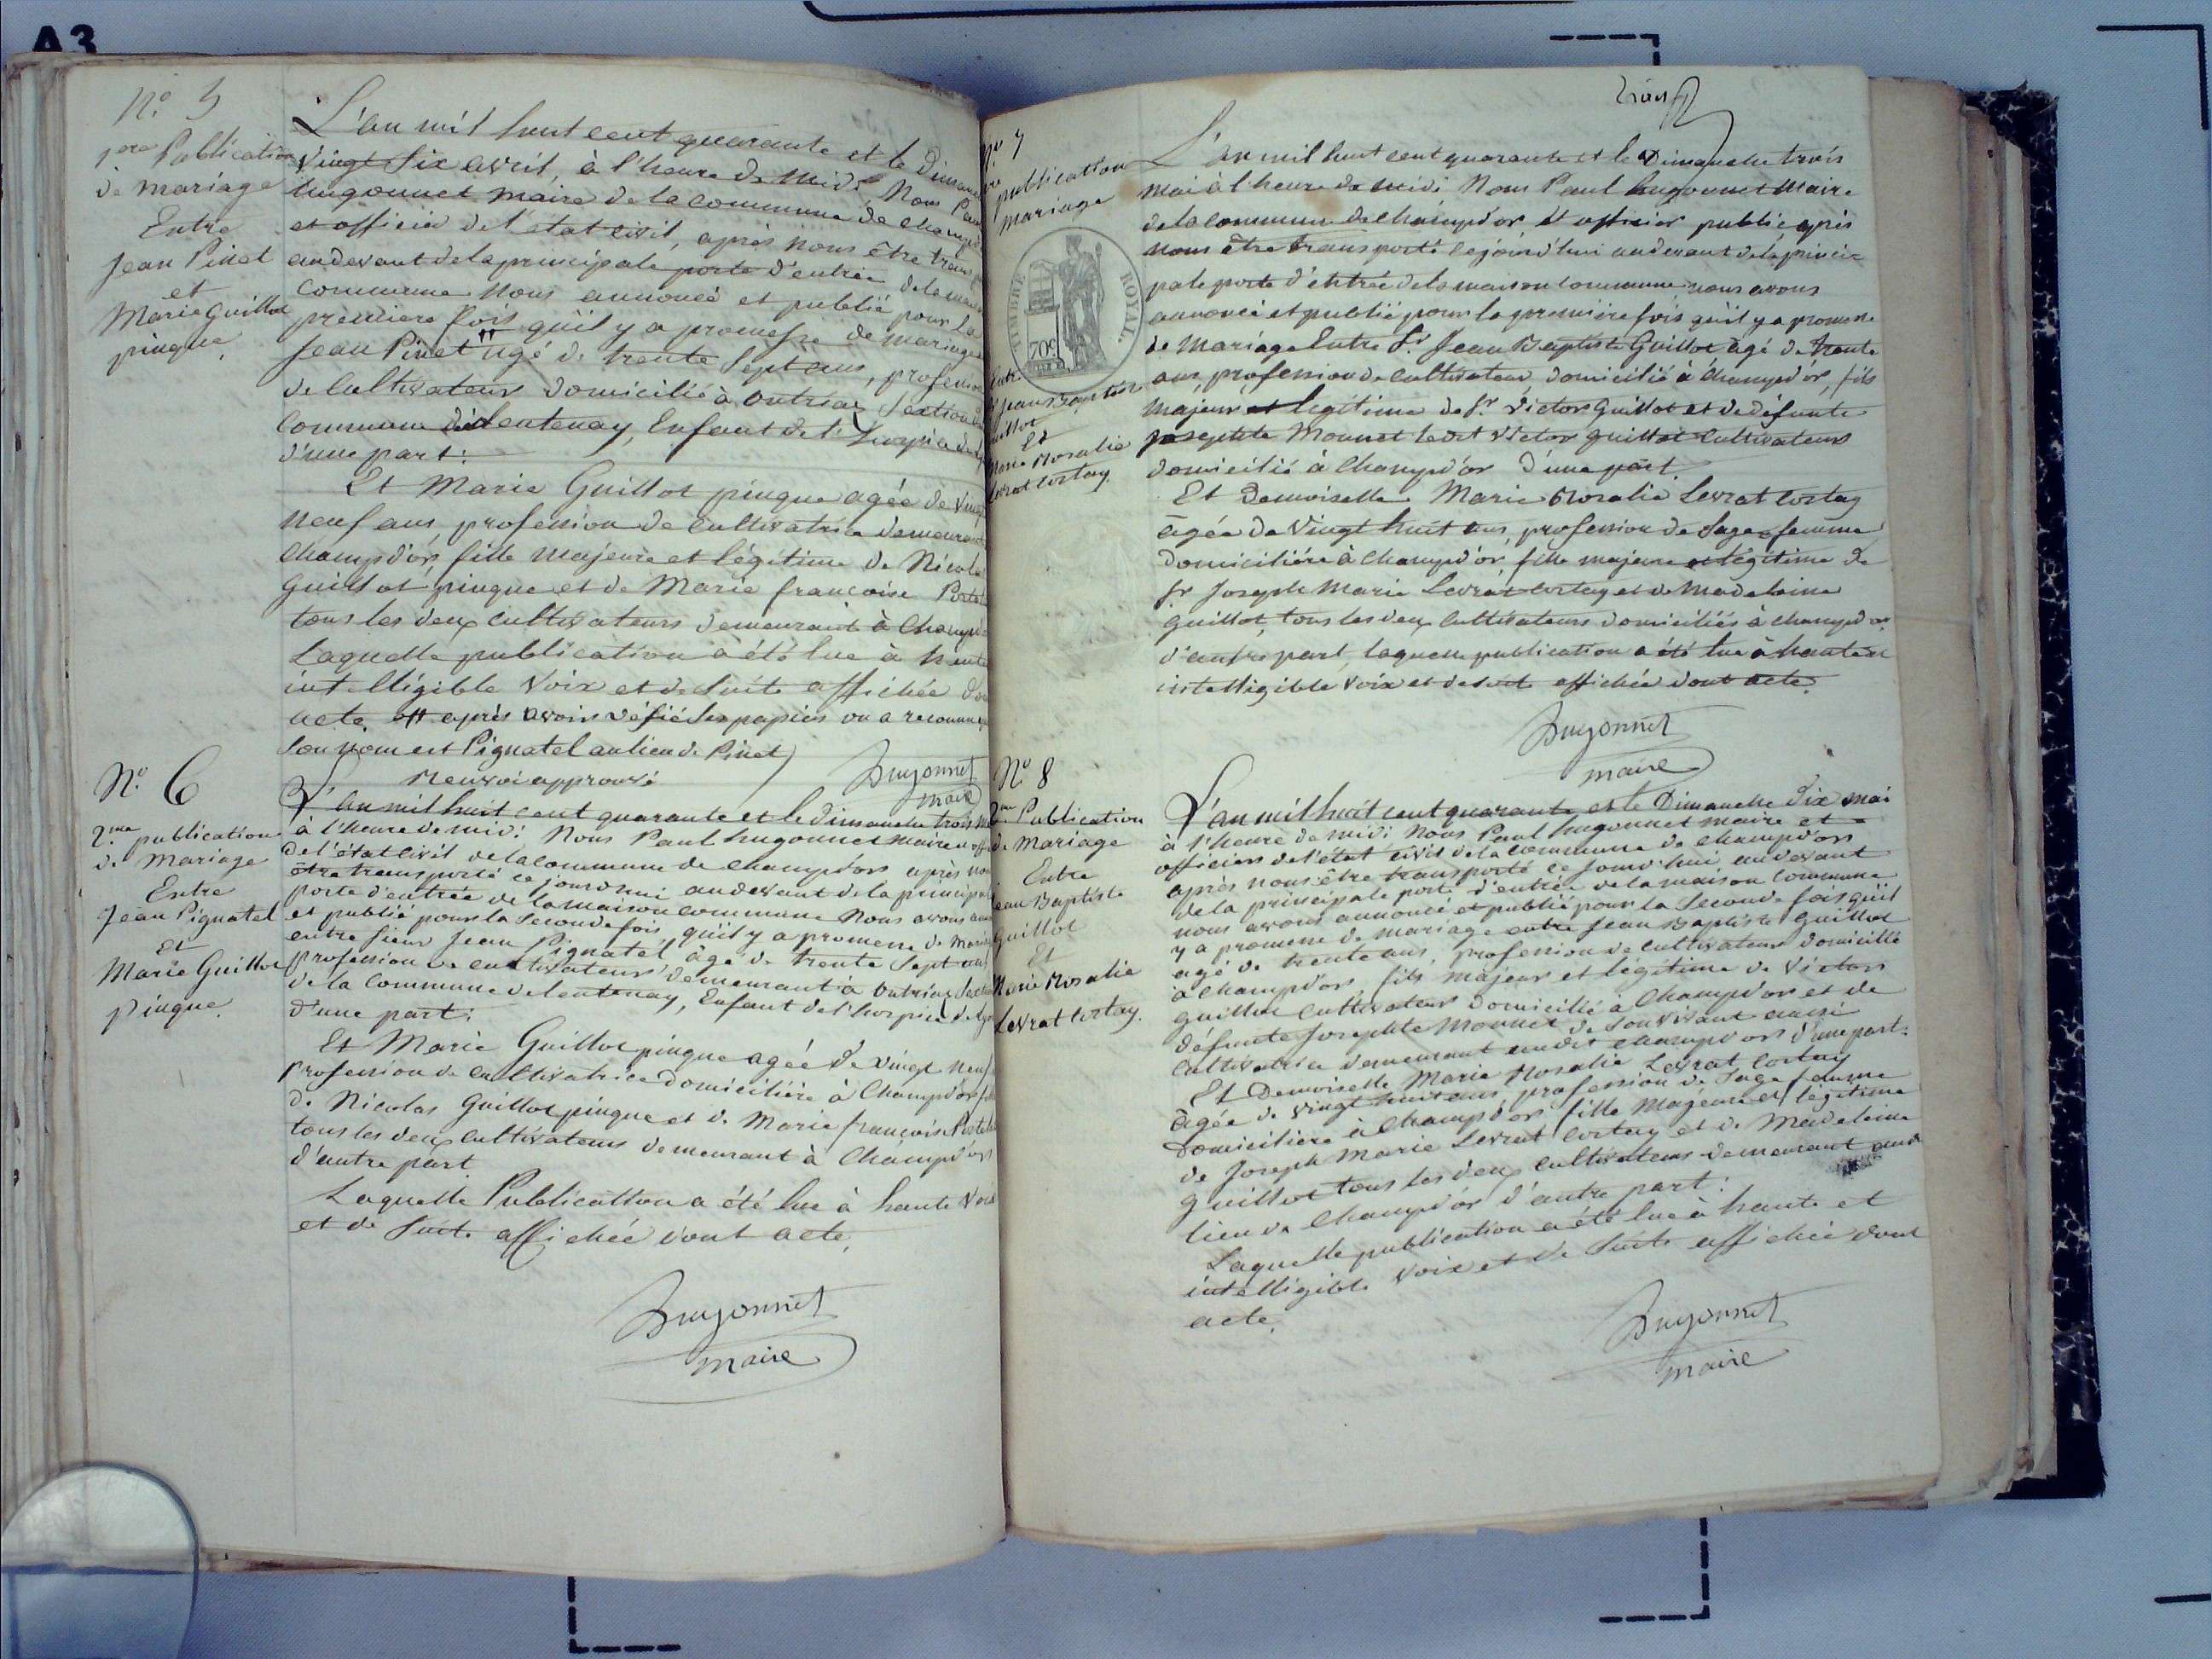 A3
N.º 5
1ere Publication
de mariage
Entre
Jean Pinet
et
Marie Guillot
pingue
L'an mil huit cent quarante et le
vingt six avril, à l'heure de midi, Nous
hugonnet maire de la commune de
et officier de l'état civil, après nous être
au devant de la principale porte d'entrée de la
commune nous annoncé et publié pour la
premiere fois qu'il y a promesse de mariage
Jean Pinet agé de trente sept ans, profession
de Cultivateur domicilié à outriaz section
commune de lentenay, Enfant de
d'une part :
Et Marie Guillot pingue agée de vingt
neuf ans, profession de cultivatrice
Champd'or, fille majeure et légitime de
Guillot pingue et de Marie françoise
tous les deux cultivateurs demeurant à
Laquelle publication à été lue à
intelligible voix et de suite affichée
acte, après avoir les papiers on a
son nom est Pignatel au lieu de Pinet
Renvoi approuvé
hugonnet
maire
N.º 6
2.me publication
de Mariage
Entre
Jean Pignatel
et
Marie Guillot
pingue.
L'an mil huit cent quarante et le dimanche trois
à l'heure de midi Nous Paul hugonnet maire
de l'état civil de la commune de champd'or après
être transporté ce jourd'hui au devant de la
porte d'entrée de la maison commune Nous avons
et publié pour la seconde fois, qu'il y a promesse de
entre sieur Jean Pignatel âgé de trente sept ans
profession de cultivateur demeurant à outriaz
de la commune de lentenay, Enfant de l'hospice de
d'une part :
Et Marie Guillot pingue agée de vingt neuf
profession de cultivatrice domiciliére à Champd'or
de Nicolas Guillot pingue et de Marie françoise
tous les deux cultivateurs demeurant à Champd'or
d'autre part
Laquelle Publication a été lue à haute voix
et de suite affichée dont acte,
hugonnet
maire
N.º 7
publication
mariage
TIMBRE ROYAL
70c
Jean Baptiste
Guillot
Et
Marie Rosalie
Levrat Cortay
L'an mil huit cent quarante et le Dimanche trois
Mai à l'heure de midi Nous Paul hugonnet Maire
de la commune de Champd'or et officier public, après
nous être transporté cejourd'hui au devant de la princi-
pale porte d'entrée de la maison commune nous avons
annoncé et publié pour la premiére fois qu'il y a promesse
de Mariage Entre Sr Jean Baptiste Guillot agé de trente
ans, profession de Cultivateur, domicilié à Champd'or, fils
majeur et légitime de Sr Victor Guillot et de défunte
josephte Monnet ledit Victor guillot Cultivateur
domicilié à Champd'or d'une part.
Et Demoiselle Marie Rosalie Levrat Cortay
agée de Vingt huit ans, profession de Sage-femme,
Domiciliére à Champd'or, fille majeure et légitime de
Sr Joseph Marie Levrat Cortay et de Madeleine
guillot, tous les deux Cultivateurs domiciliés à champd'or
d'autre part, laquelle publication a été lue à haute et
intelligible voix et de suite affichée dont acte.
hugonnet
maire
N.º 8
Publication
de Mariage
Entre
Jean Baptiste
guillot
Et
Marie Rosalie
Levrat Cortay.
L'an mil huit cent quarante et le Dimanche dix mai
à l'heure de midi Nous Paul hugonnet maire et
officier de l'état civil de la commune de champd'or
après nous être transporté ce jourd'hui au devant
de la principale porte d'entrée de la maison commune
nous avons annoncé et publié pour la seconde fois qu'il
y a promesse de mariage entre Jean Baptiste Guillot
agé de trente ans, profession de cultivateur domicilié
à Champd'or, fils majeur et légitime de Victor
guillot cultivateur domicilié à Champd'or et de
défunte Josephte Monnet de son vivant aussi
cultivatrice demeurant au dit champd'or d'une part.
Et Demoiselle Marie Rosalie Levrat Cortay
agée de vingt huit ans, profession de Sage femme
Domiciliere à Champd'or fille majeure et légitime
de Joseph Marie Levrat Cortay et de Madeleine
guillot tous les deux cultivateurs demeurant
lieu de Champd'or d'autre part :
Laquelle publication a été lue à haute et
intelligible voix et de suite affichée dont
acte,
hugonnet
maire